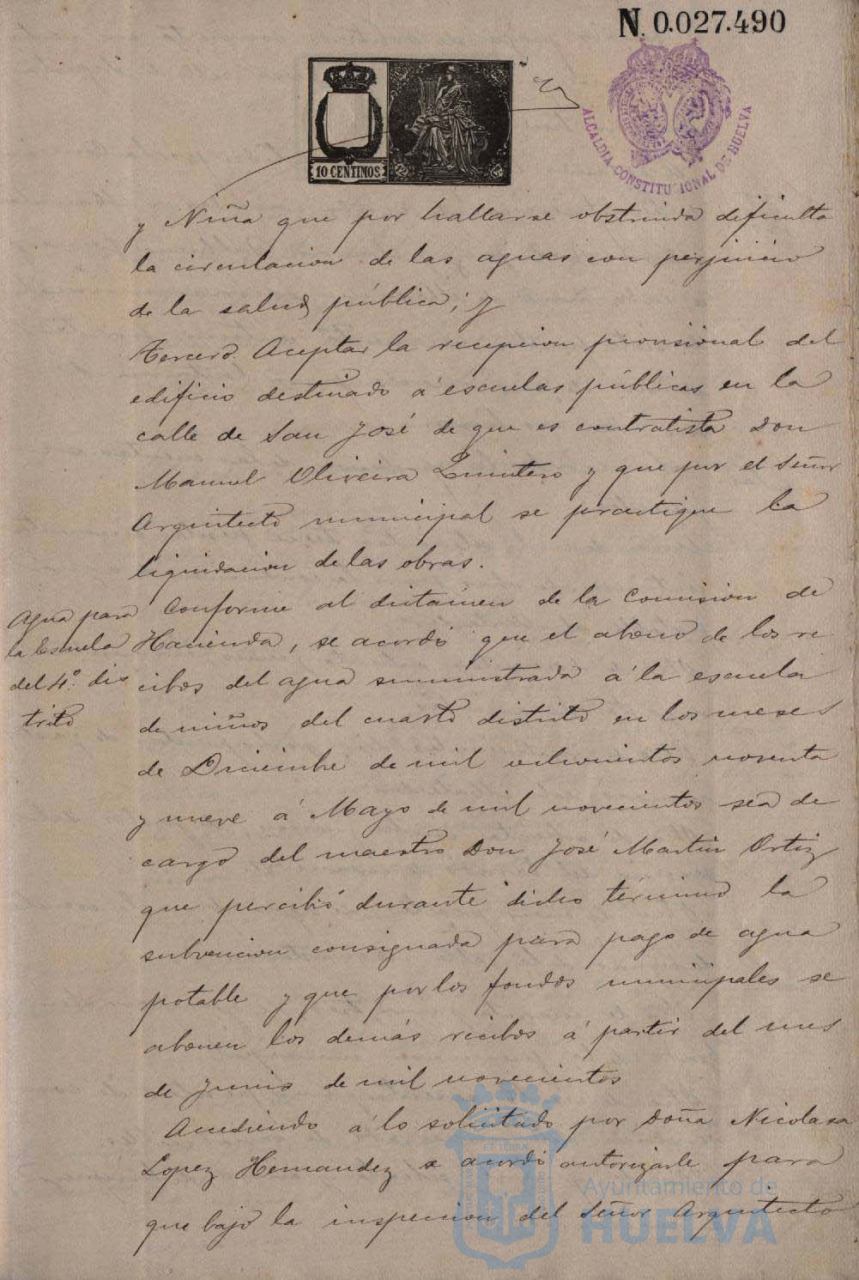 N. 0.027.490
10 CENTIMOS
ALCALDIA CONSTITUCIONAL DE HUELVA
y Niña que por hallarse obstruida dificulta
la circulacion de las aguas con perjuicio
de la salud pública; y
Tercero Aceptar la recepcion provisional del
edificio destinado á escuelas públicas en la
calle de San José de que es contratista Don
Manuel Oliveira Quintero y que por el Señor
Arquitecto municipal se practique la
liquidacion de las obras.
Agua para
la Escuela
del 4º. dis
trito
Conforme al dictámen de la Comision de
Hacienda, se acordó que el abono de los re
cibos del agua suministrada á la escuela
de niños del cuarto distrito en los meses
de Diciembre de mil ochocientos noventa
y nueve á Mayo de mil novecientos sea de
cargo del maestro Don José Martin Ortiz
que percibió durante dicho término la
subvencion consignada para pago de agua
potable y que por los fondos municipales se
abonen los demás recibos á partir del mes
de Junio de mil novecientos
Accediendo á lo solicitado por Doña Nicolasa
Lopez Hernandez se acordó autorizarle para
que bajo la inspeccion del Señor Arquitecto
Ayuntamiento de
HUELVA